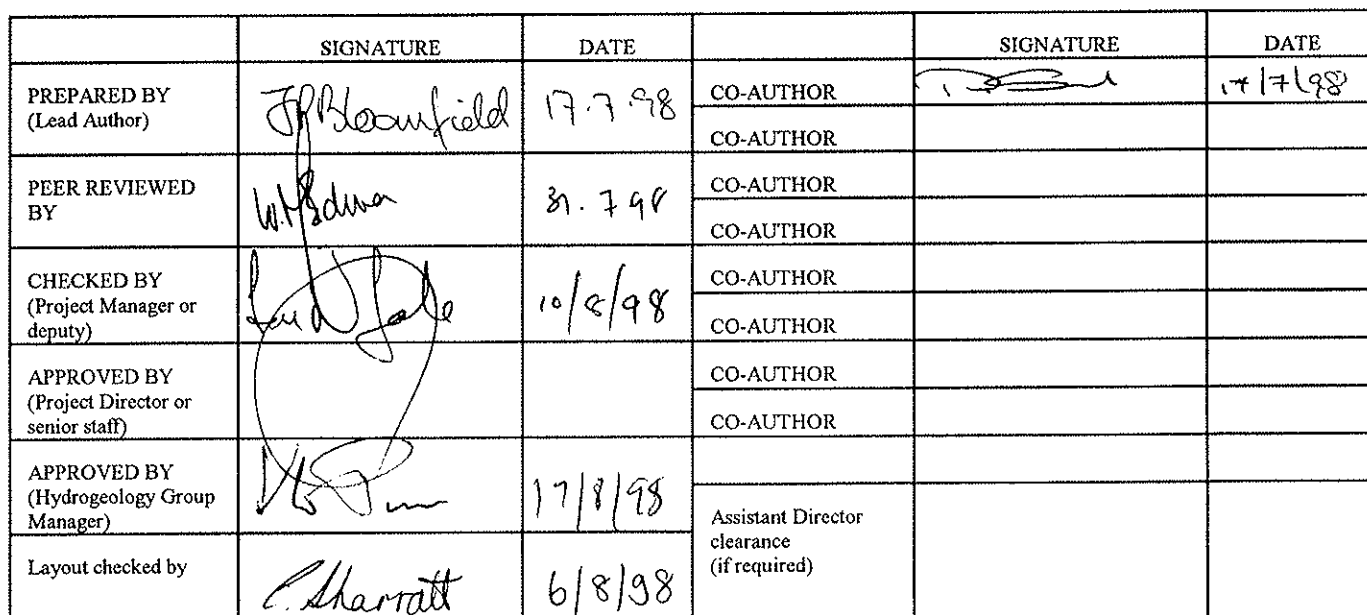 SIGNATURE DATE SIGNATURE DATE
PREPARED BY
(Lead Author)
JPBloomfield 17.7.98
CO-AUTHOR 17/7/98
CO-AUTHOR
PEER REVIEWED
BY
31.7.98
CO-AUTHOR
CO-AUTHOR
CHECKED BY
(Project Manager or
deputy)
10/8/98
CO-AUTHOR
CO-AUTHOR
APPROVED BY
(Project Director or
senior staff)
CO-AUTHOR
CO-AUTHOR
APPROVED BY
(Hydrogeology Group
Manager)
17/8/98
Layout checked by
C. Sharratt 6/8/98
Assistant Director
clearance
(if required)